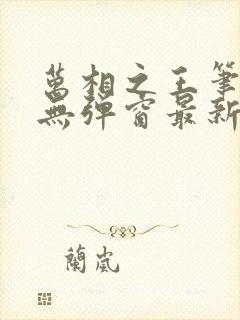 萬相之王筆
無彈窗最新
蘭嵐